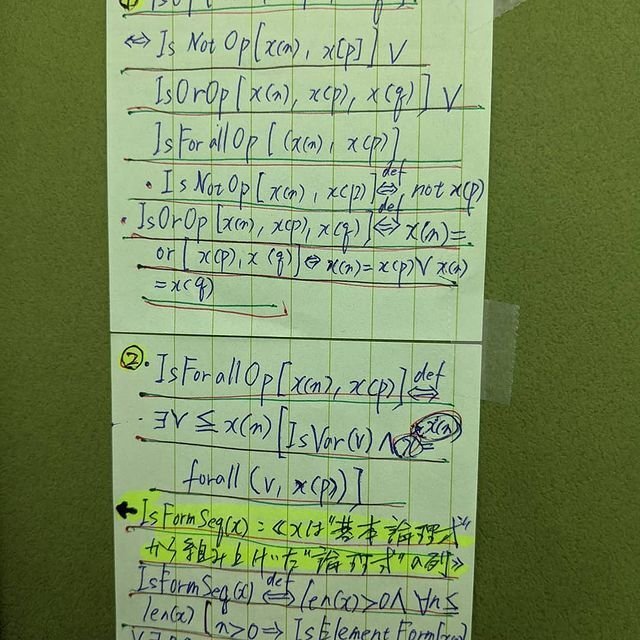 ① IsOp[
⇔ IsNotOp[x(n), x[p]] ∨
IsOrOp[x(n), x(p), x(q)] ∨
IsForallOp[(x(n), x(p)]
・IsNotOp[x(n), x(p)] def⇔ not x(p)
・IsOrOp[x(n), x(p), x(q)] def⇔ x(n)=
or[x(p), x(q)] ⇔ x(n)=x(p)∨x(n)
=x(q)
②・IsForallOp[x(n), x(p)] def⇔
∃V≦x(n)[IsVar(v)∧ x(n)=
forall(v, x(p))]
← IsFormSeq(x) = 《xは"基本論理式"
から組み上げた"論理式"の列》
IsFormSeq(x) def⇔ len(x)>0∧∀n≦
len(x)[n>0⇒IsElementForm(x(n))